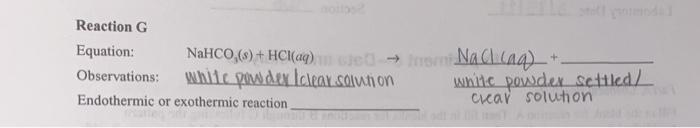 Reaction G
Equation: NaHCO₃(s) + HCl(aq) → NaCl(aq) +
Observations: white powder/clear solution white powder settled/
clear solution
Endothermic or exothermic reaction